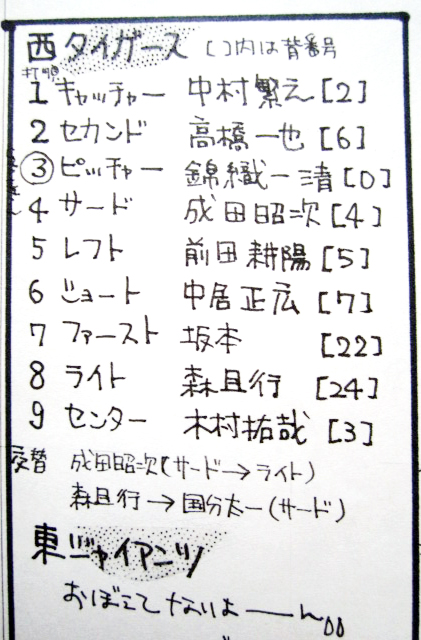 西 タイガース []内は背番号
打順
1 キャッチャー 中村繁之[2]
2 セカンド 高橋一也[6]
③ ピッチャー 錦織一清[0]
4 サード 成田昭次[4]
5 レフト 前田耕陽[5]
6 ショート 中居正広[7]
7 ファースト 坂本 [22]
8 ライト 森且行 [24]
9 センター 木村拓哉[3]
交替 成田昭次(サード→ライト)
森且行→国分太一(サード)
東ジャイアンツ
おぼえてないよーん